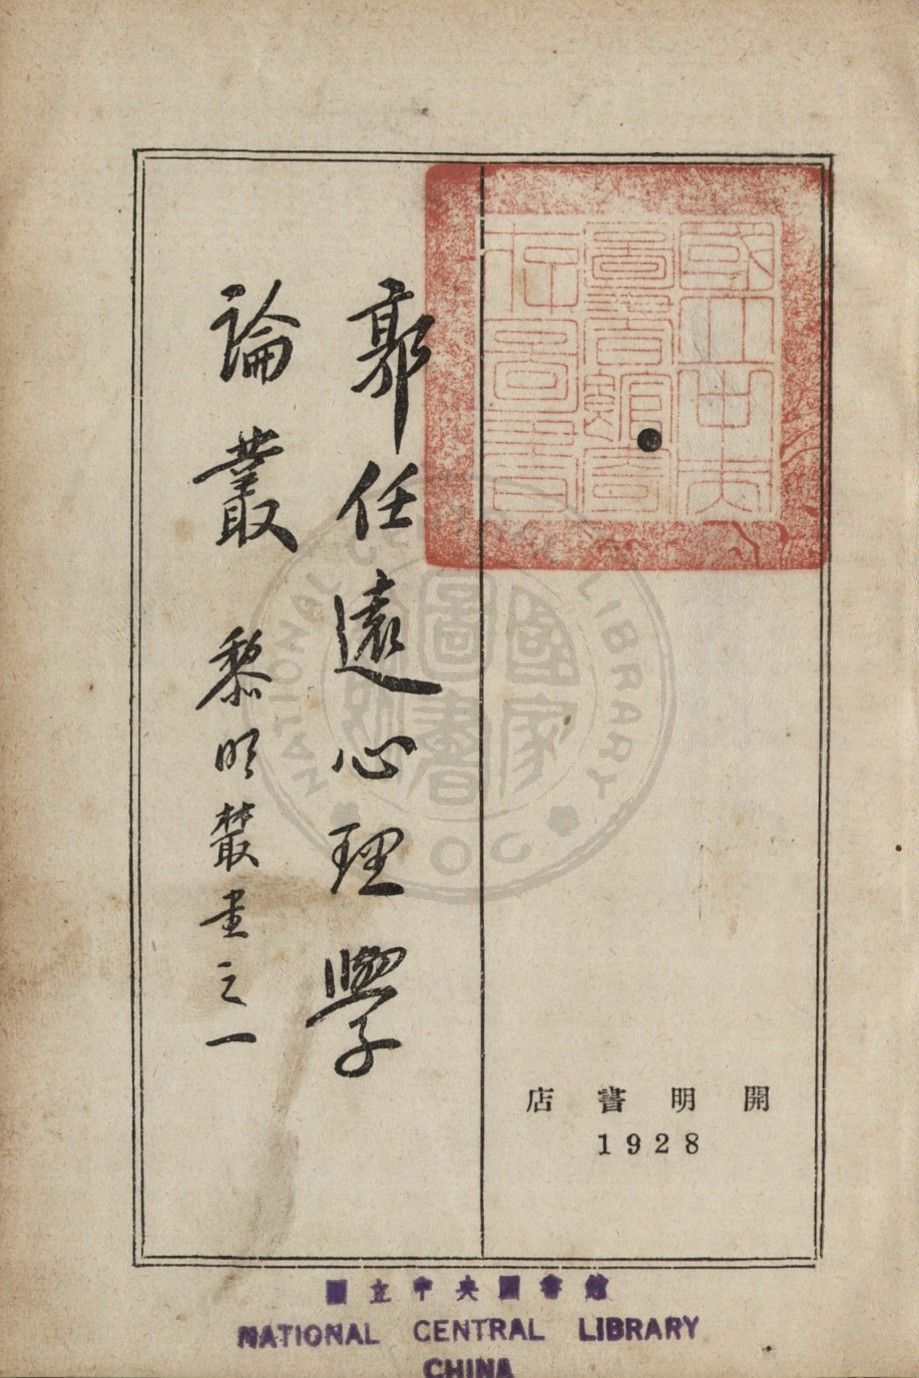 郭任遠心理學
論叢
黎明叢書之一
開明書店
1928
國立中央圖書館考藏圖書
國家圖書館
NATIONAL CENTRAL LIBRARY
ROC
國立中央圖書館
NATIONAL CENTRAL LIBRARY
CHINA